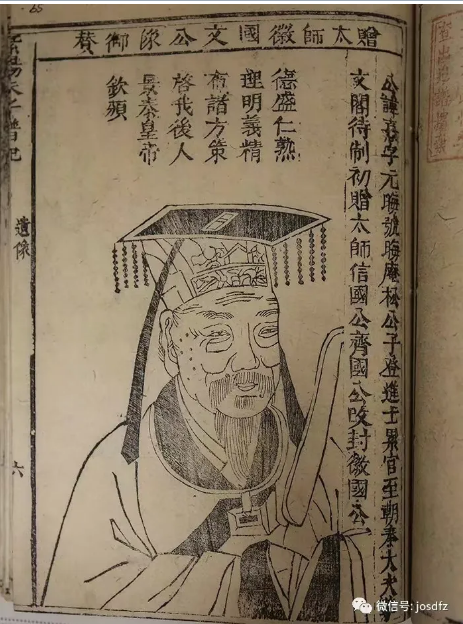 贈太師徽國文公像御賛
公諱熹字元晦號晦庵松公子登進士累官至朝奉大夫
文閣待制初贈太師信國公齊國公改封徽國公
德盛仁熟
理明義精
布諸方策
啓我後人
皇帝
欽頒
遺像
六
微信号: josdfz